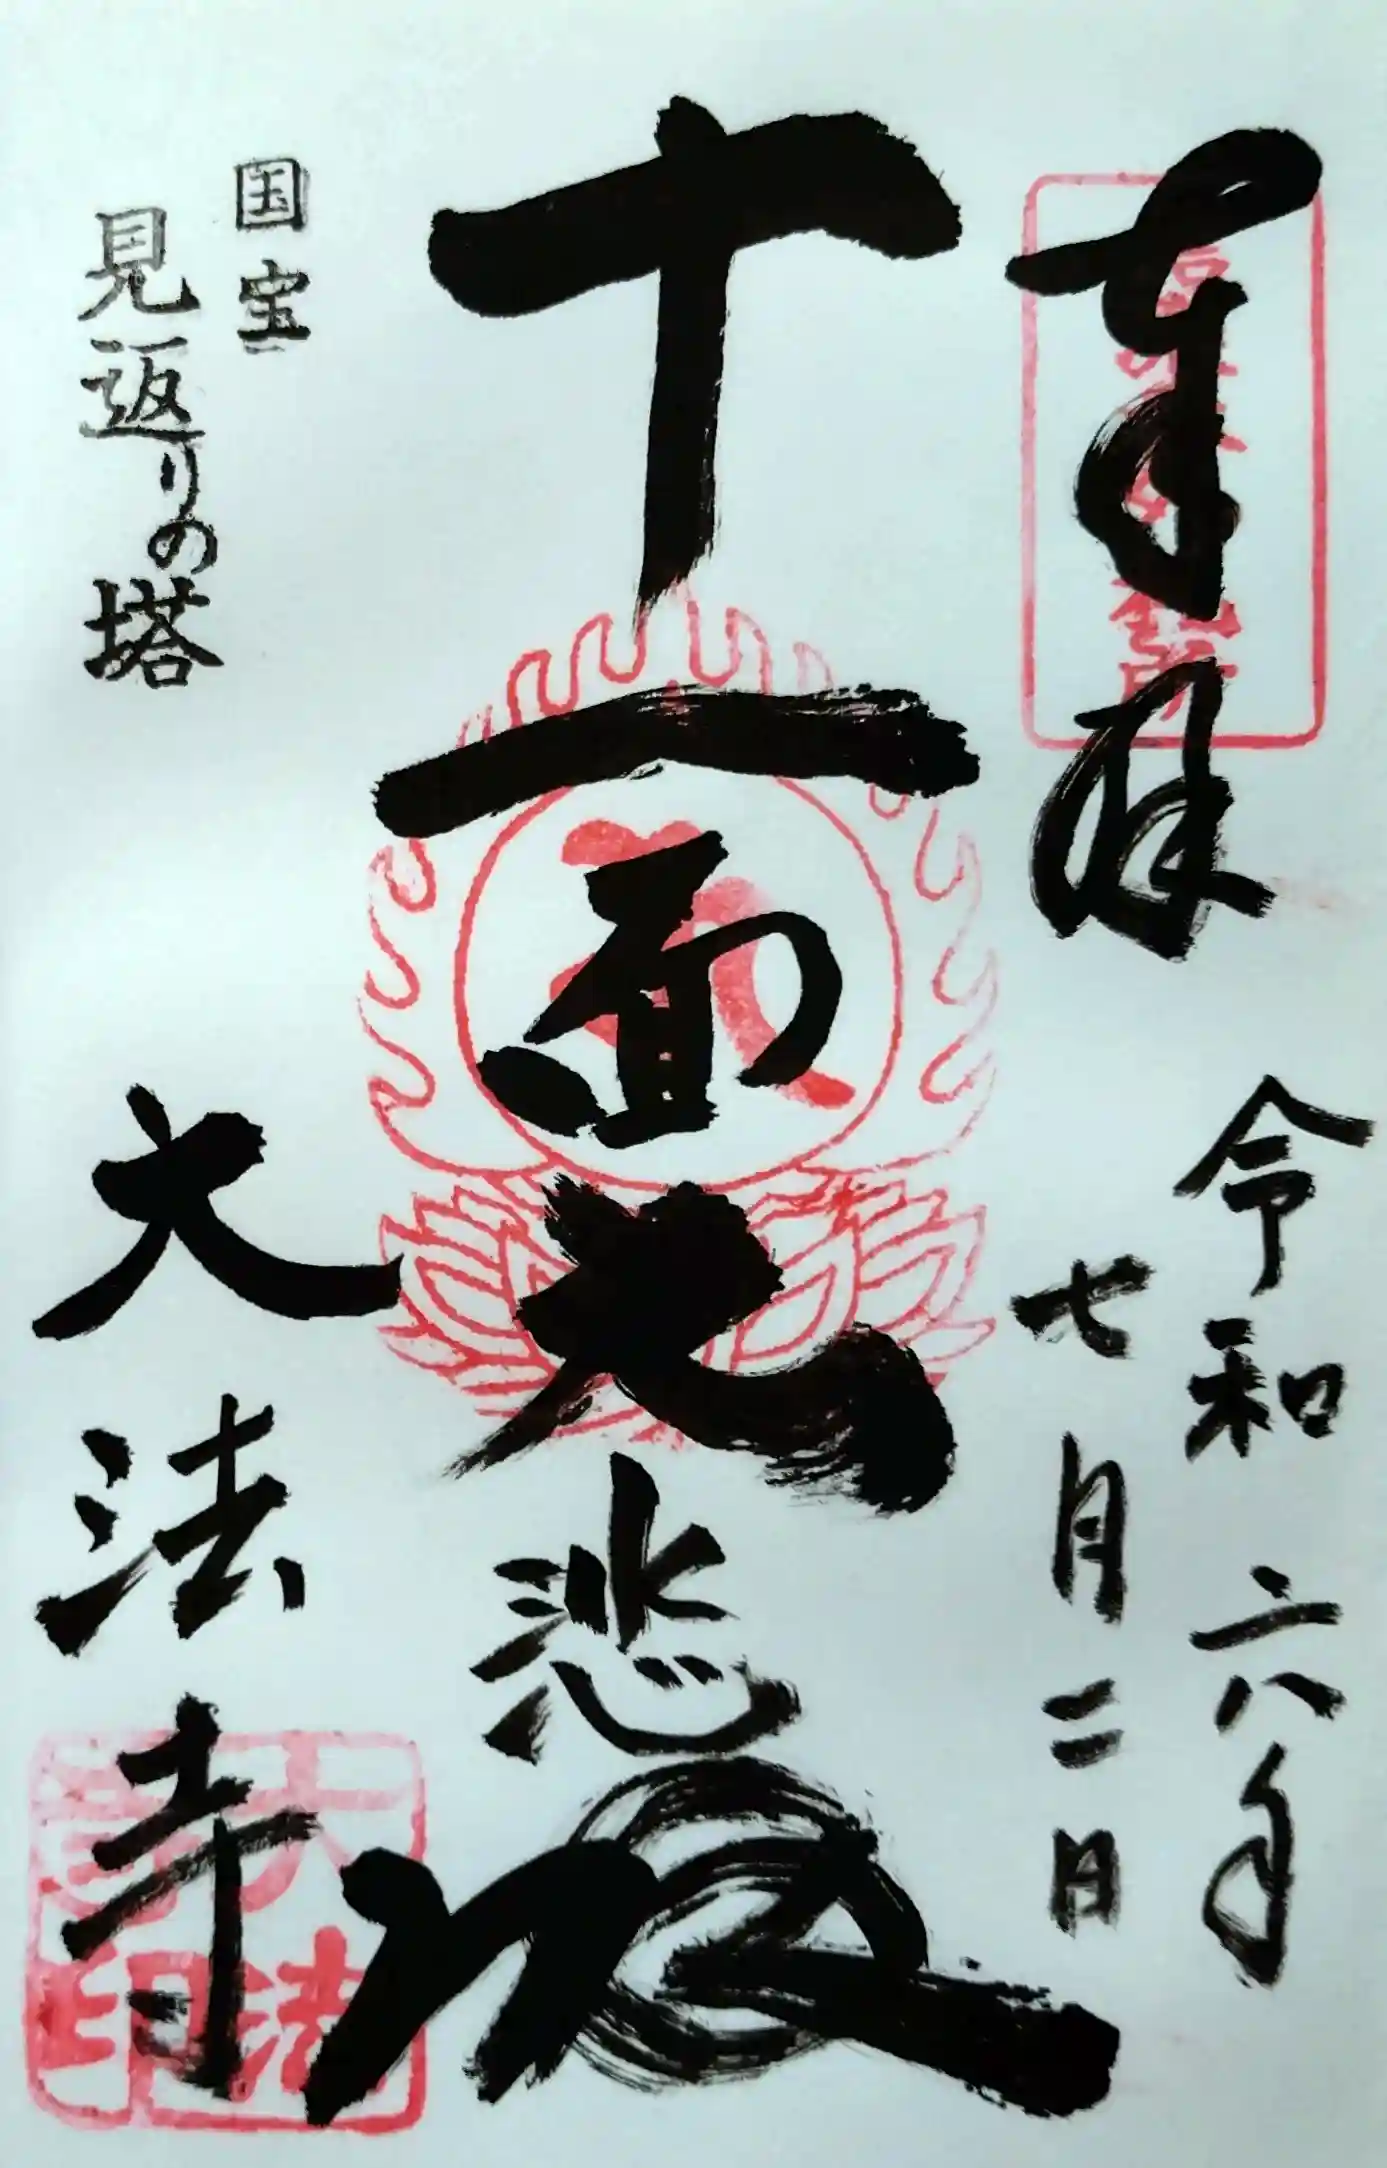 奉拝
令和六年
七月二日
十一面大悲殿
国宝
見返りの塔
大法寺
大法寺印